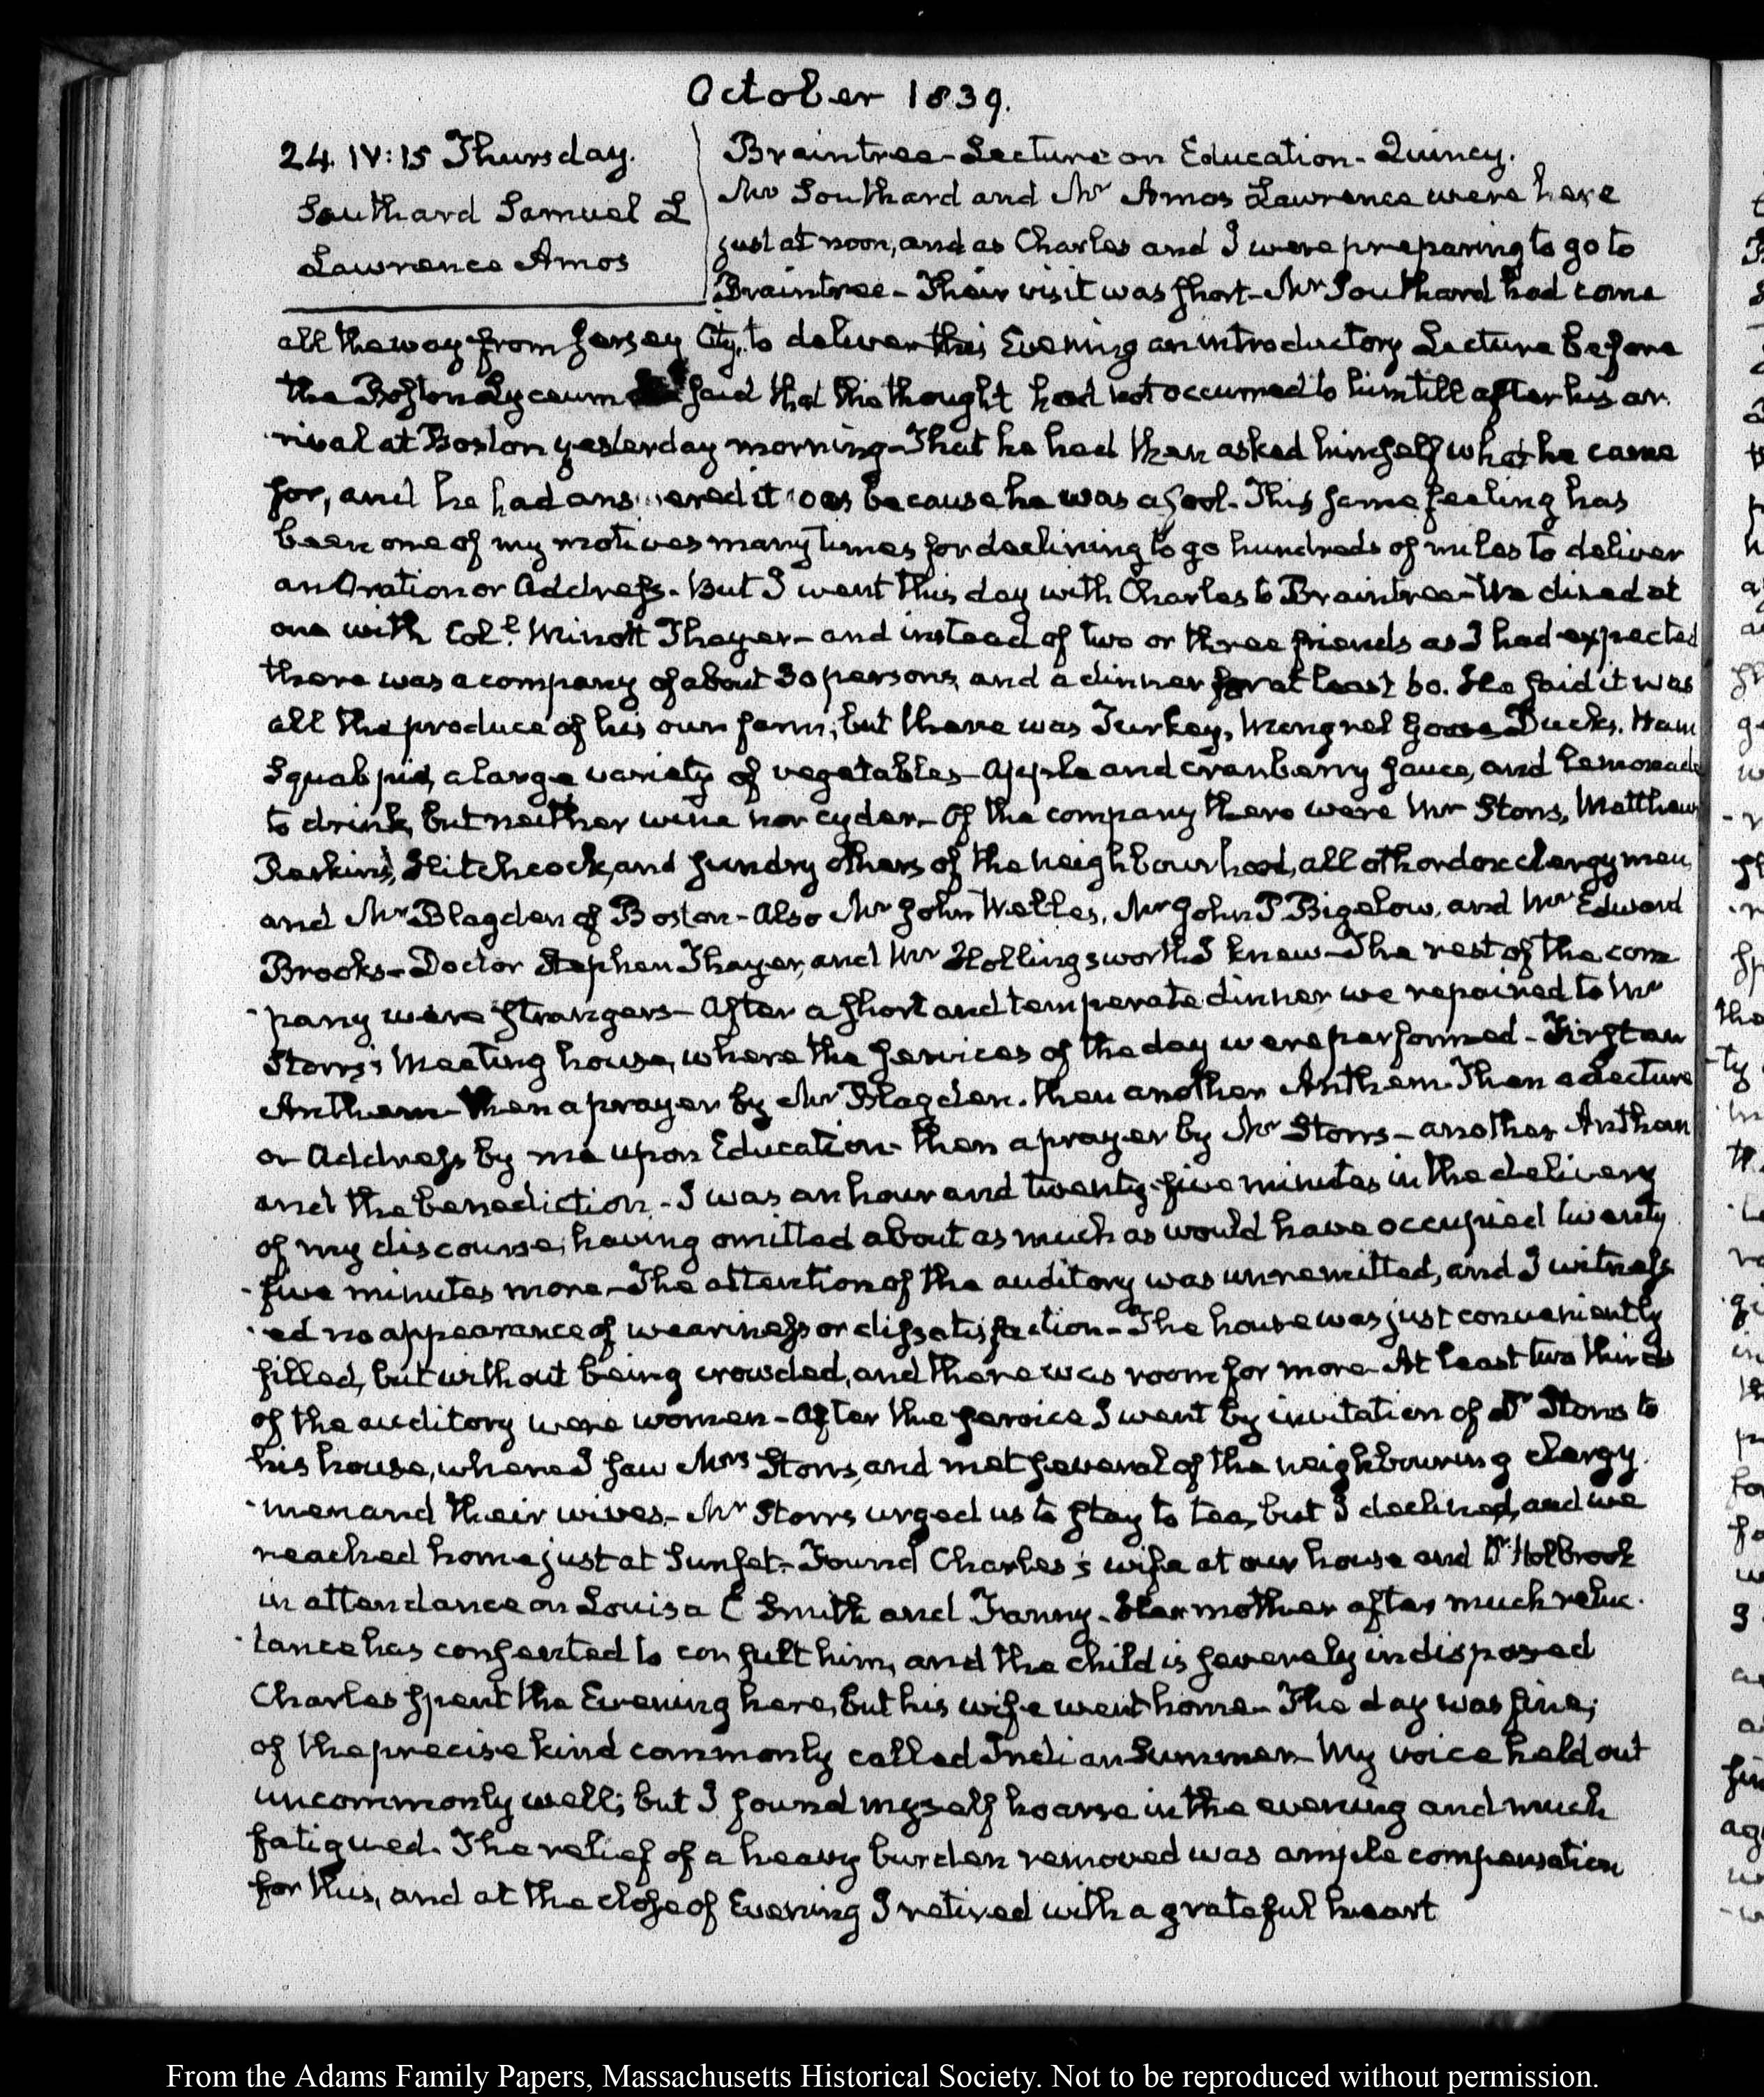 October 1839.
24. IV:15 Thursday.
Southard Samuel L
Lawrence Amos
Braintree - Lecture on Education - Quincy.
Mr Southard and Mr Amos Lawrence were here
just at noon, and as Charles and I were preparing to go to
Braintree - Their visit was short - Mr Southard had come
all the way from Jersey City, to deliver this Evening an introductory Lecture before
the Boston Lyceum said that the thought had not occurred to him till after his ar
rival at Boston yesterday morning - That he had then asked himself what he came
for, and he had answered it was because he was a fool. This same feeling has
been one of my motives many times for declining to go hundreds of miles to deliver
an Oration or Address. But I went this day with Charles to Braintree - We dined at
one with Col.l Minott Thayer - and instead of two or three friends as I had expected
there was a company of about 30 persons, and a dinner for at least 60. He said it was
all the produce of his own farm; but there was Turkey, Mongrel Goose Ducks. Ham
Squab pie, a large variety of vegetables - Apple and cranberry sauce, and Lemonade
to drink, but neither wine nor cyder. Of the company there were Mr Storrs, Matthews
Perkins, Hitchcock, and sundry others of the neighbourhood, all othordox clergymen,
and Mr Blagden of Boston - Also Mr John Welles, Mr John P Bigelow, and Mr Edward
Brooks - Doctor Stephen Thayer, and Mr Hollingsworth I knew - The rest of the com
-pany were strangers - After a short and temperate dinner we repaired to Mr
Storrs's Meeting house, where the services of the day were performed - First an
Anthem - then a prayer by Mr Blagden. then another Anthem. Then a Lecture
or Address by me upon Education - then a prayer by Mr Storrs - another Anthem
and the benediction. - I was an hour and twenty-five minutes in the delivery
of my discourse; having omitted about as much as would have occupied twenty
-five minutes more - The attention of the auditory was unremitted, and I witness
-ed no appearance of weariness or dissatisfaction - The house was just conveniently
filled, but without being crowded, and there was room for more - At least two thirds
of the auditory were women - After the service I went by invitation of Dr Storrs to
his house, where I saw Mrs Storrs, and met several of the neighbouring clergy
-men and their wives. - Mr Storrs urged us to stay to tea, but I declined, and we
reached home just at Sunset. - Found Charles's wife at our house and Dr Holbrook
in attendance on Louisa C Smith and Fanny. Her mother after much reluc-
-tance has consented to consult him, and the child is severely indisposed
Charles spent the Evening here, but his wife went home - The day was fine;
of the precise kind commonly called Indian Summer - My voice held out
uncommonly well; but I found myself hoarse in the evening and much
fatigued. The relief of a heavy burden removed was ample compensation
for this, and at the close of Evening I retired with a grateful heart
From the Adams Family Papers, Massachusetts Historical Society. Not to be reproduced without permission.